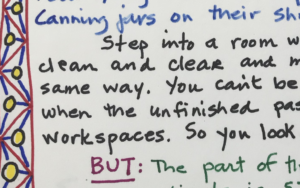 Canning jars on their sh
Step into a room w
clean and clear and m
same way. You can't be
when the unfinished pas
workspaces. So you look
BUT: The part of